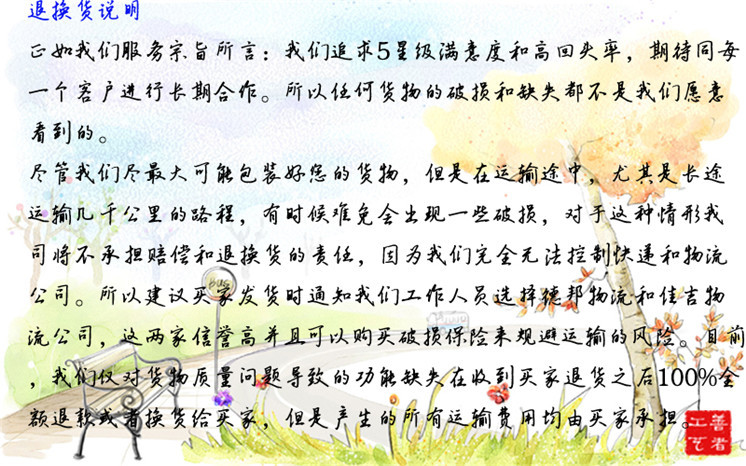 退换货说明
正如我们服务宗旨所言：我们追求5星级满意度和高回头率，期待同每
一个客户进行长期合作。所以任何货物的破损和缺失都不是我们愿意
看到的。
尽管我们尽最大可能包装好您的货物，但是在运输途中，尤其是长途
运输几千公里的路程，有时候难免会出现一些破损，对于这种情形我
司将不承担赔偿和退换货的责任，因为我们完全无法控制快递和物流
公司。所以建议买家发货时通知我们工作人员选择德邦物流和佳吉物
流公司，这两家信誉高并且可以购买破损保险来规避运输的风险。目前
，我们仅对货物质量问题导致的功能缺失在收到买家退货之后100%全
额退款或者换货给买家，但是产生的所有运输费用均由买家承担。
善者工艺